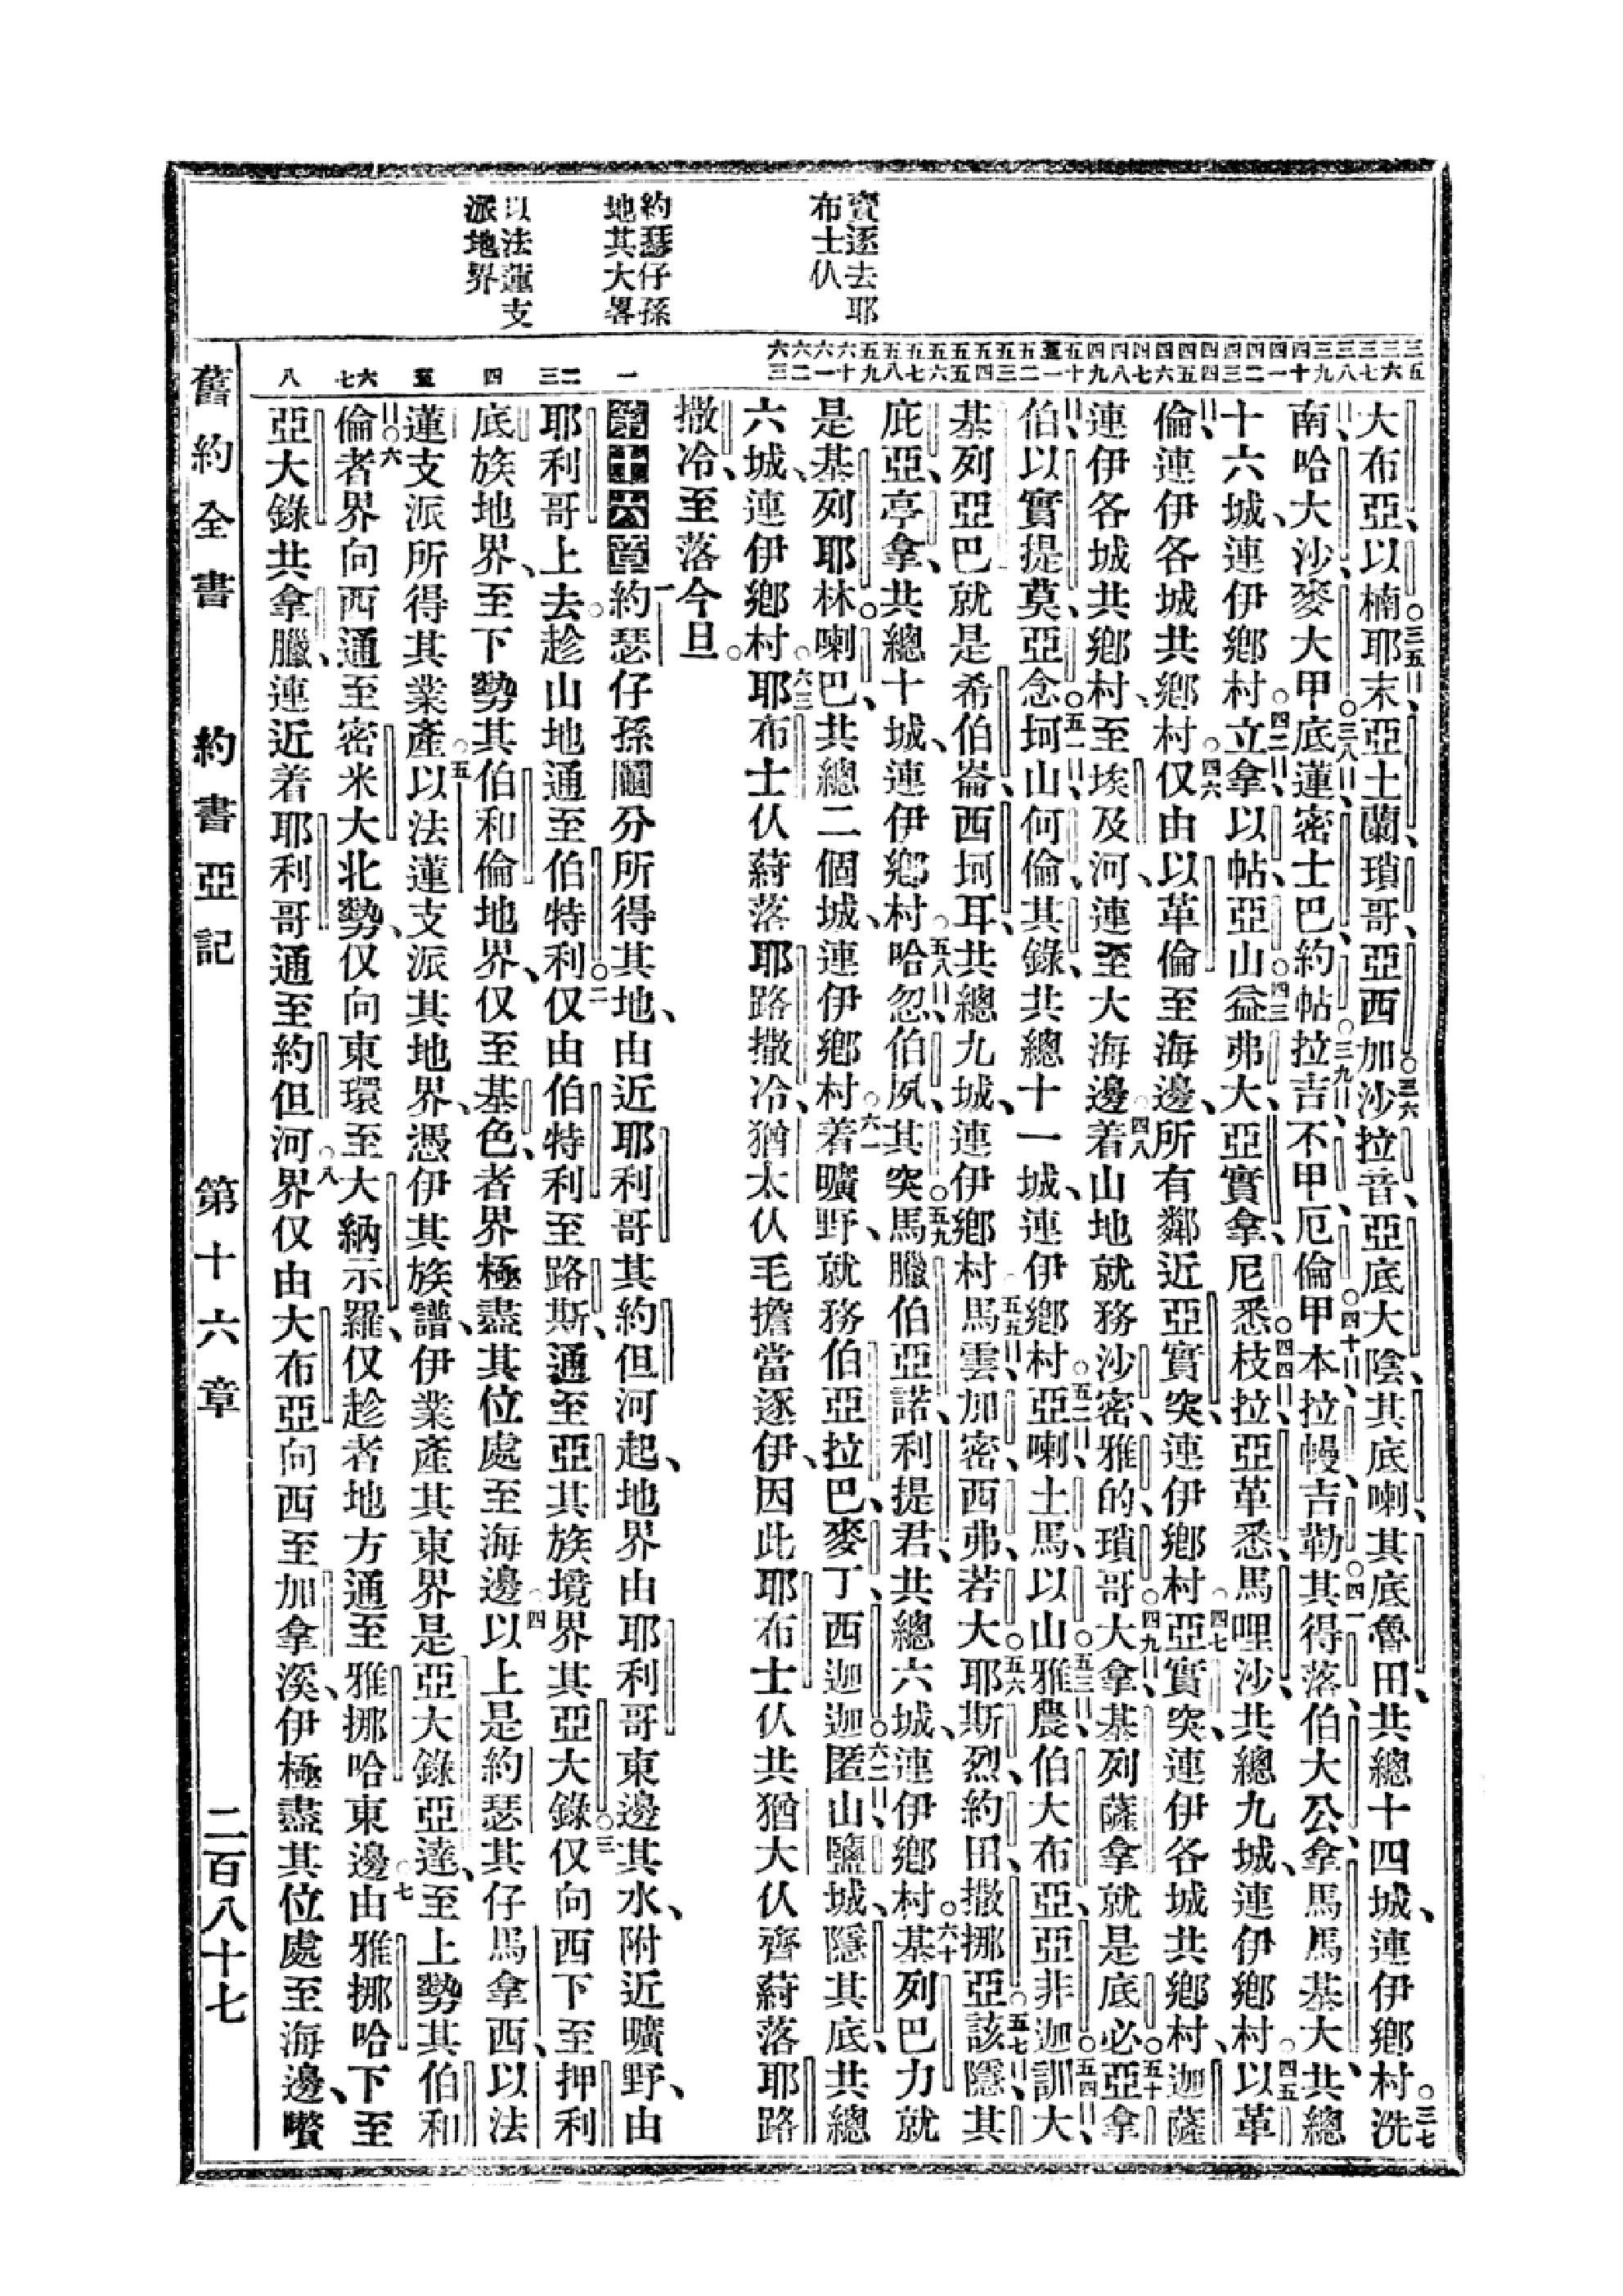 實逐去耶
布士仈
約瑟仔孫
地其大畧
以法蓮支
派地界
三五 三六 三七 三八 三九 四十 四一 四二 四三 四四 四五 四六 四七 四八 四九 五十 五一 五二 五三 五四 五五 五六 五七 五八 五九 六十 六一 六二 六三
一 二 三 四 五 六 七 八
大布亞以楠○三五耶末、亞土蘭、瑣哥、亞西加、○三六沙拉音、亞底大陰、其底喇、其底魯田、共總十四城、連伊鄉村。○三七洗
南、哈大沙、麥大甲、○三八底蓮、密士巴、約帖、○三九拉吉、不甲厄倫、○四十甲本、拉幔、吉勒、○四一其得落、伯大公、拿馬、馬基大、共總
十六城、連伊鄉村。○四二立拿、以帖、亞山、○四三益弗大、亞實拿、尼悉、○四四枝拉、亞革悉、馬哩沙、共總九城、連伊鄉村。○四五以革
倫、連伊各城共鄉村、○四六仅由以革倫至海邊、所有鄰近亞實突、連伊鄉村。○四七亞實突連伊各城共鄉村、迦薩
連伊各城共鄉村、至埃及河、連至大海邊。○四八着山地就務沙密、雅的、瑣哥、○四九大拿、基列薩拿就是底必、○五十亞拿
伯、以實提莫、亞念、○五一坷山、何倫、其錄、共總十一城、連伊鄉村。○五二亞喇、土馬、以山、○五三雅農、伯大布亞、亞非迦、○五四訓大、
基列亞巴就是希伯崙、西坷耳、共總九城、連伊鄉村。○五五馬雲、加密、西弗、若大、○五六耶斯烈、約田、撒挪亞、○五七該隱、其
庇亞、亭拿、共總十城、連伊鄉村。○五八哈忽、伯夙、其突、○五九馬臘、伯亞諾、利提君、共總六城、連伊鄉村。○六十基列巴力就
是基列耶林、喇巴、共總二個城、連伊鄉村。○六一着曠野、就務伯亞拉巴、麥丁、西迦迦、○六二匿山、鹽城、隱其底、共總
六城、連伊鄉村。○六三耶布士仈蒔落耶路撒冷、猶太仈毛擔當逐伊、因此耶布士仈共猶大仈齊蒔落耶路
撒冷、至落今旦。
第十六章 一約瑟仔孫鬮分所得其地、由近耶利哥其約但河起、地界由耶利哥東邊其水、附近曠野、由
耶利哥上去、趁山地通至伯特利。○二仅由伯特利至路斯、通至亞其族境界其亞大錄。○三仅向西下至押利
底族地界、至下勢其伯和倫地界、仅至基色者界極盡其位處至海邊。○四以上是約瑟其仔馬拿西、以法
蓮支派所得其業產。○五以法蓮支派其地界、憑伊其族譜、伊業產其東界是亞大錄亞達、至上勢其伯和
倫、○六者界向西通至密米大北勢、仅向東環至大納示羅、仅趁者地方通至雅挪哈東邊。○七由雅挪哈下至
亞大錄共拿臘、連近着耶利哥通至約但河。○八界仅由大布亞向西至加拿溪、伊極盡其位處至海邊、嚽
舊約全書 約書亞記 第十六章 二百八十七